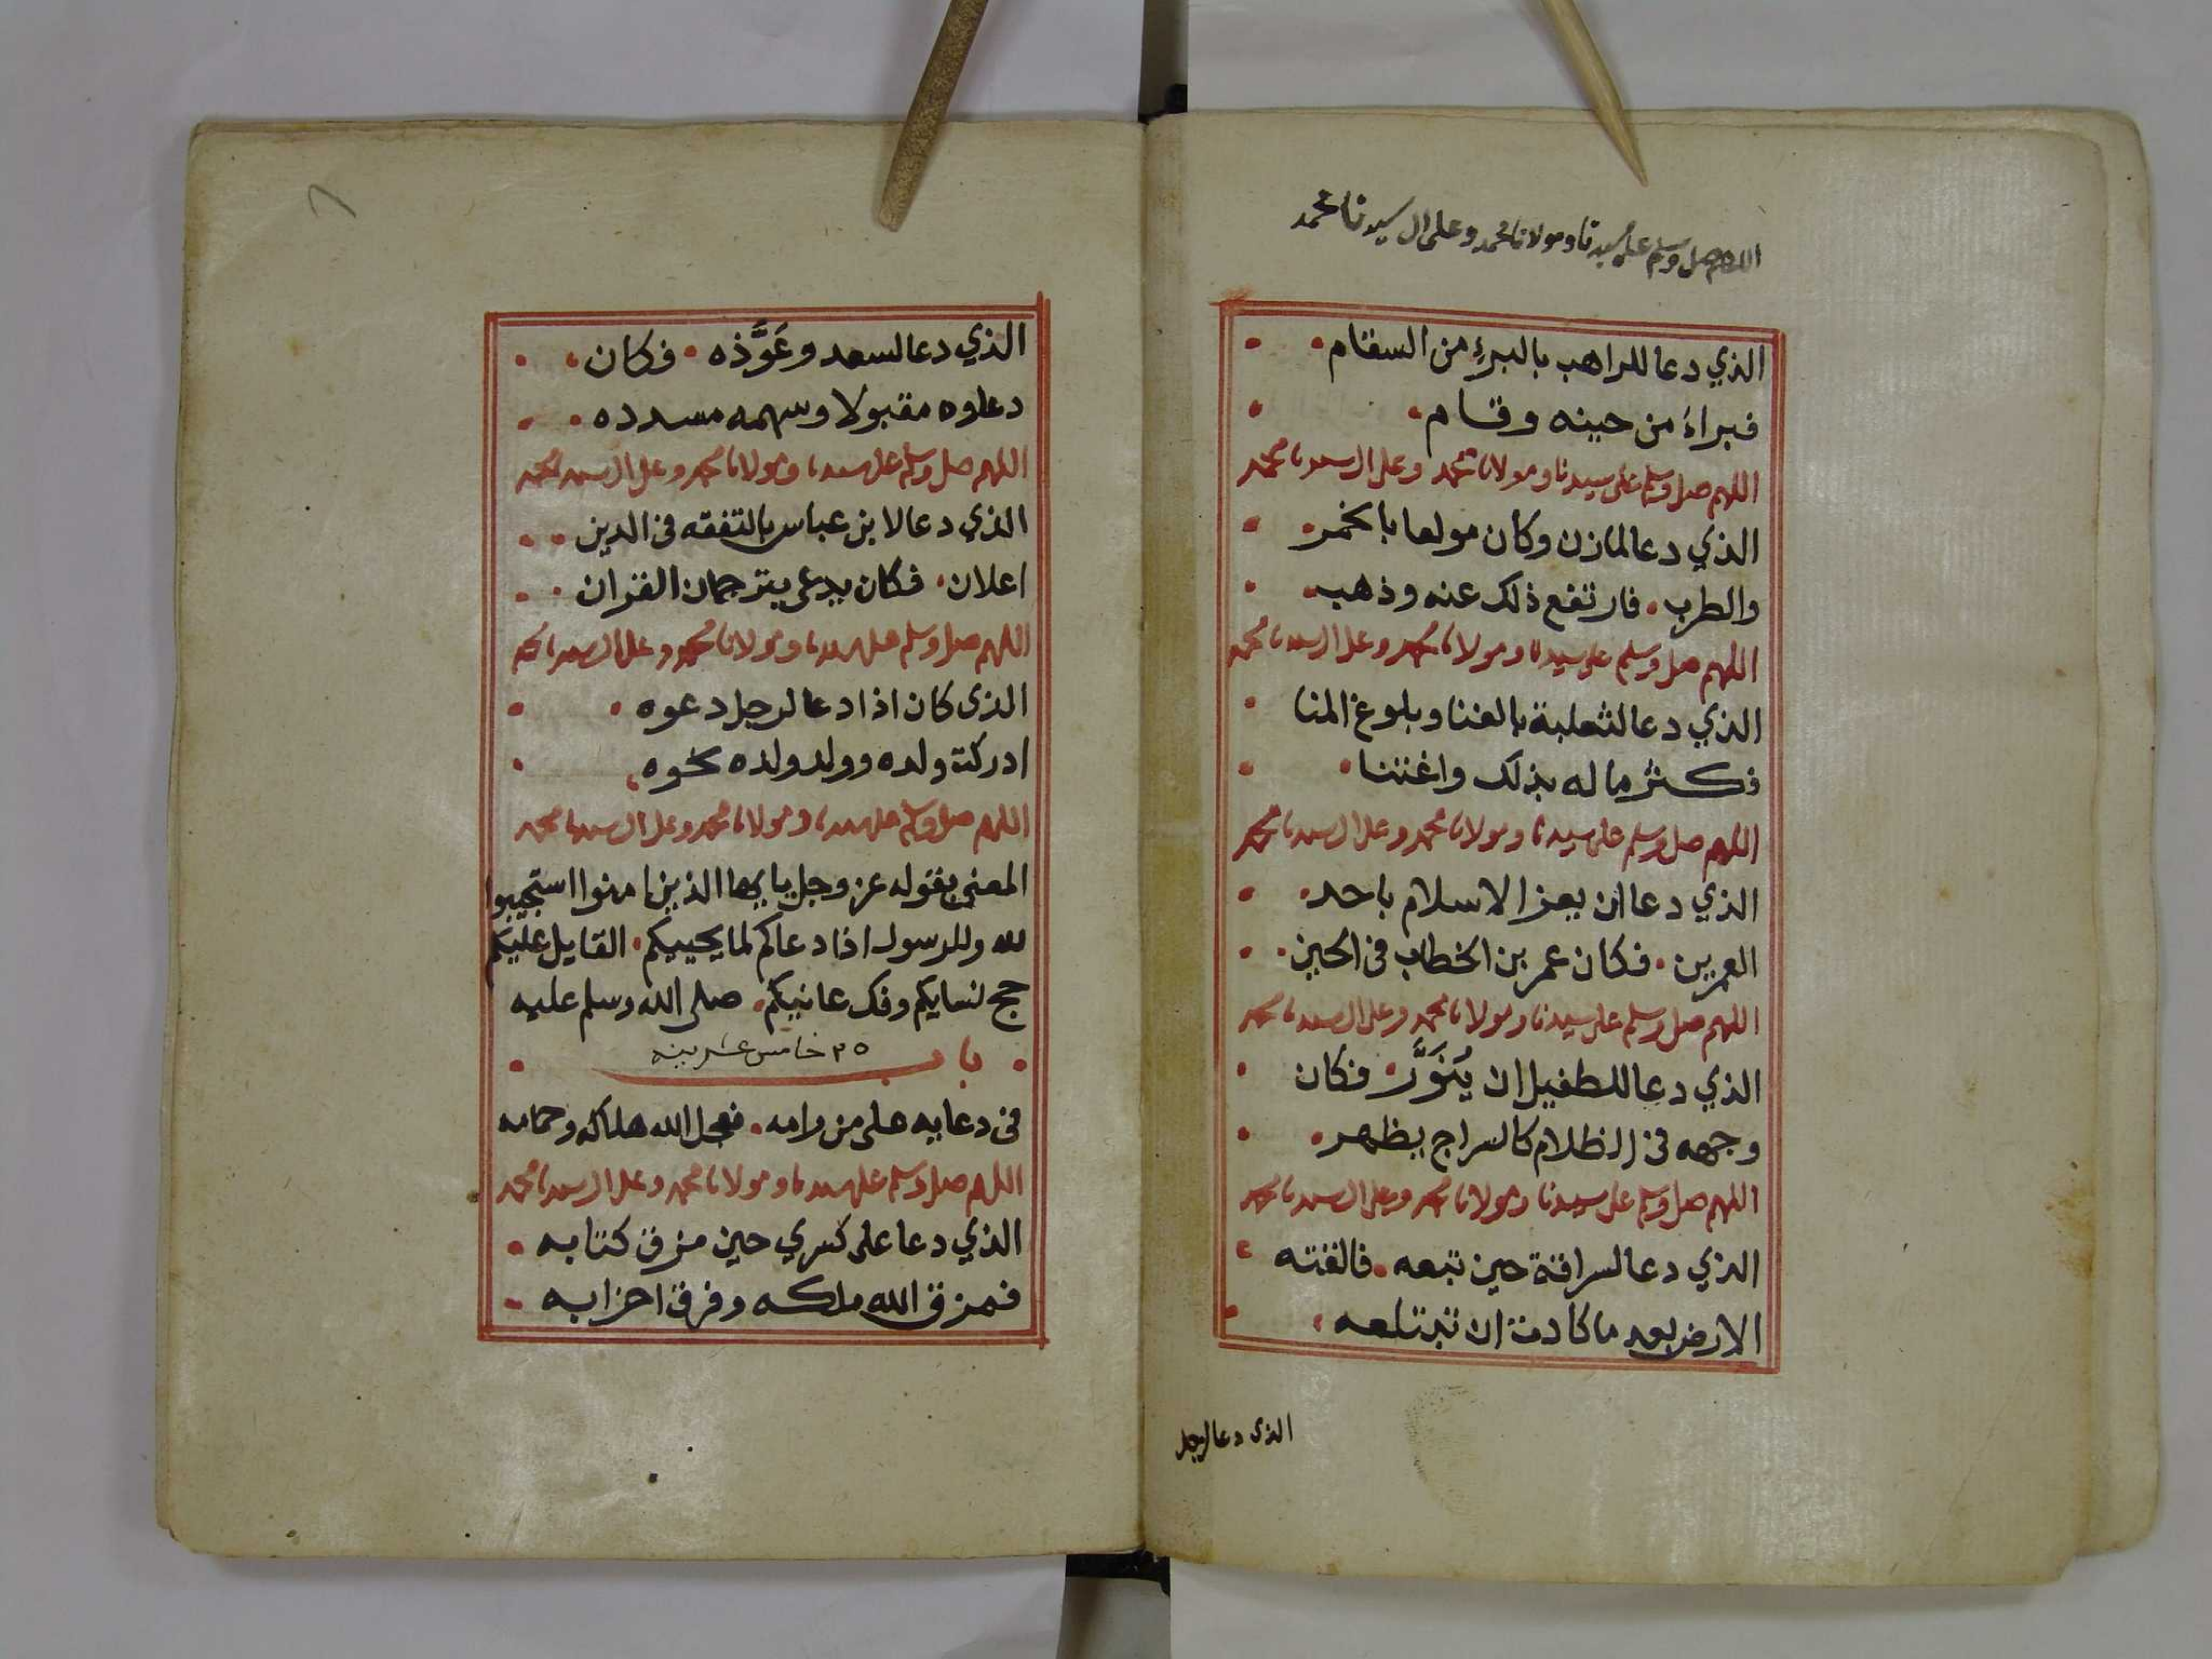 اللهم صل وسلم على سيدنا ومولانا محمد وعلى ال سيدنا محمد
الذي دعا للراهب بالبرء من السقام
فبراء من حينه وقام
اللهم صل وسلم على سيدنا ومولانا محمد وعلى ال سيدنا محمد
الذي دعا لمازن وكان مولعا بالخمر
والطرب فارتفع ذلك عنه وذهب
اللهم صل وسلم على سيدنا ومولانا محمد وعلى ال سيدنا محمد
الذي دعا لثعلبة بالغنا وبلوغ المنا
فكثر ماله بذلك واغتنا
اللهم صل وسلم على سيدنا ومولانا محمد وعلى ال سيدنا محمد
الذي دعا ان يعز الاسلام باحد
العمرين فكان عمر بن الخطاب في الحين
اللهم صل وسلم على سيدنا ومولانا محمد وعلى ال سيدنا محمد
الذي دعا للطفيل ان يُنَوَّر فكان
وجهه في الظلام كالسراج يظهر
اللهم صل وسلم على سيدنا ومولانا محمد وعلى ال سيدنا محمد
الذي دعا لسراقة حين تبعه فالفته
الارض بعد ما كادت ان تبتلعه
الذي دعا لرجل
الذي دعا لسعد وعَوَّذه فكان
دعاوه مقبولا وسهمه مسدده
اللهم صل وسلم على سيدنا ومولانا محمد وعلى ال سيدنا محمد
الذي دعا لابن عباس بالتفقه في الدين
اعلان فكان يدعى بترجمان القران
اللهم صل وسلم على سيدنا ومولانا محمد وعلى ال سيدنا محمد
الذي كان اذا دعا لرجل دعوه
ادركت ولده وولد ولده نحوه
اللهم صل وسلم على سيدنا ومولانا محمد وعلى ال سيدنا محمد
المعني بقوله عز وجل يايها الذين امنوا استجيبوا
لله وللرسول اذا دعاكم لما يحييكم القايل عليكم
حج نسايكم وفك عانيكم صلى الله وسلم عليه
باب ٢٥ خامس عشرينه
في دعايه على من رامه فعجل الله هلاكه وحمامه
اللهم صل وسلم على سيدنا ومولانا محمد وعلى ال سيدنا محمد
الذي دعا على كسري حين مزق كتابه
فمزق الله ملكه وفرق احزابه